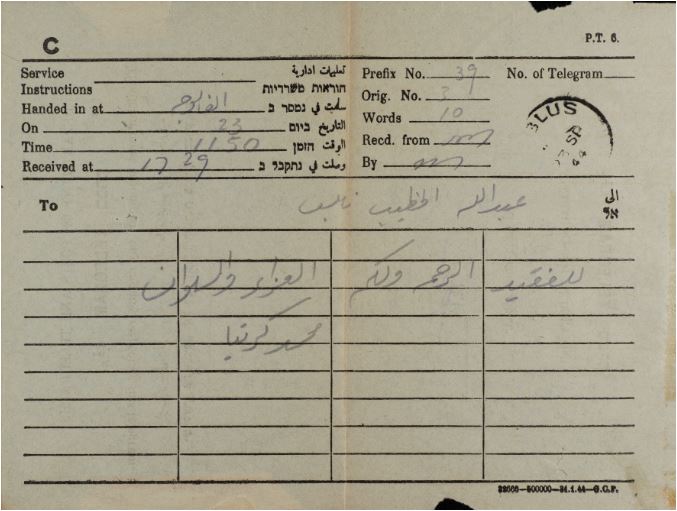 C
P.T. 6.
Service تعليمات ادارية
Instructions הוראות משרדיות
Handed in at الفالوجه سلمت في נמסר ב
On 23 التاريخ ביום
Time 1150 الوقت הזמן
Received at 17 29 وصلت في נתקבל ב
Prefix No. 39 No. of Telegram
Orig. No. 3
Words 10
Recd. from
By
BLUS
SP
To عبدالله الخطيب نابلس الى אל
للفقيد الرحمه ولكم العزاء والسلوان
محمد كرتيا
32666—500000—24.1.44—G.C.P.